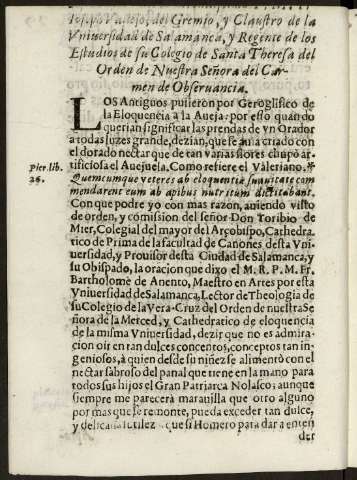 Ioseph Vallejo, del Gremio, y Claustro de la
Vniuersidad de Salamanca, y Regente de los
Estudios de su Colegio de Santa Theresa del
Orden de Nuestra Señora del Car-
men de Obseruancia.
LOS Antiguos pusieron por Geroglifico de
la Eloquencia a la Aueja: por esto quando
querian significar las prendas de vn Orador
a todas luzes grande, dezian, que se auia criado con
el dorado nectar que de tan varias flores chupò ar-
tificiosa el Auejuela. Como refiere el Valeriano. *
Pier. lib.
26.
Quemcumque veteres ab eloquentiæ suauitate com
mendarent eum ab apibus nutritum dictitabant.
Con que podre yo con mas razon, auiendo visto
de orden, y comission del señor Don Toribio de
Mier, Colegial del mayor del Arçobispo, Cathedra-
tico de Prima de la facultad de Canones desta Vni-
uersidad, y Prouisor desta Ciudad de Salamanca, y
su Obispado, la oracion que dixo el M. R. P. M. Fr.
Bartholome de Anento, Maestro en Artes por esta
Vniuersidad de Salamanca, Lector de Theologia de
su Colegio de la Vera-Cruz del Orden de nuestra Se
ñora de la Merced, y Cathedratico de eloquencia
de la misma Vniuersidad, dezir que no es admira-
cion oir en tan dulces concentos, conceptos tan in-
geniosos, à quien desde su niñez se alimentò con el
nectar sabroso del panal que tiene en la mano para
todos sus hijos el Gran Patriarca Nolasco; aunque
siempre me parecerà marauilla que otro alguno
por mas que se remonte, pueda exceder tan dulce,
y delicada sutilez que si Homero para dar a enten
der